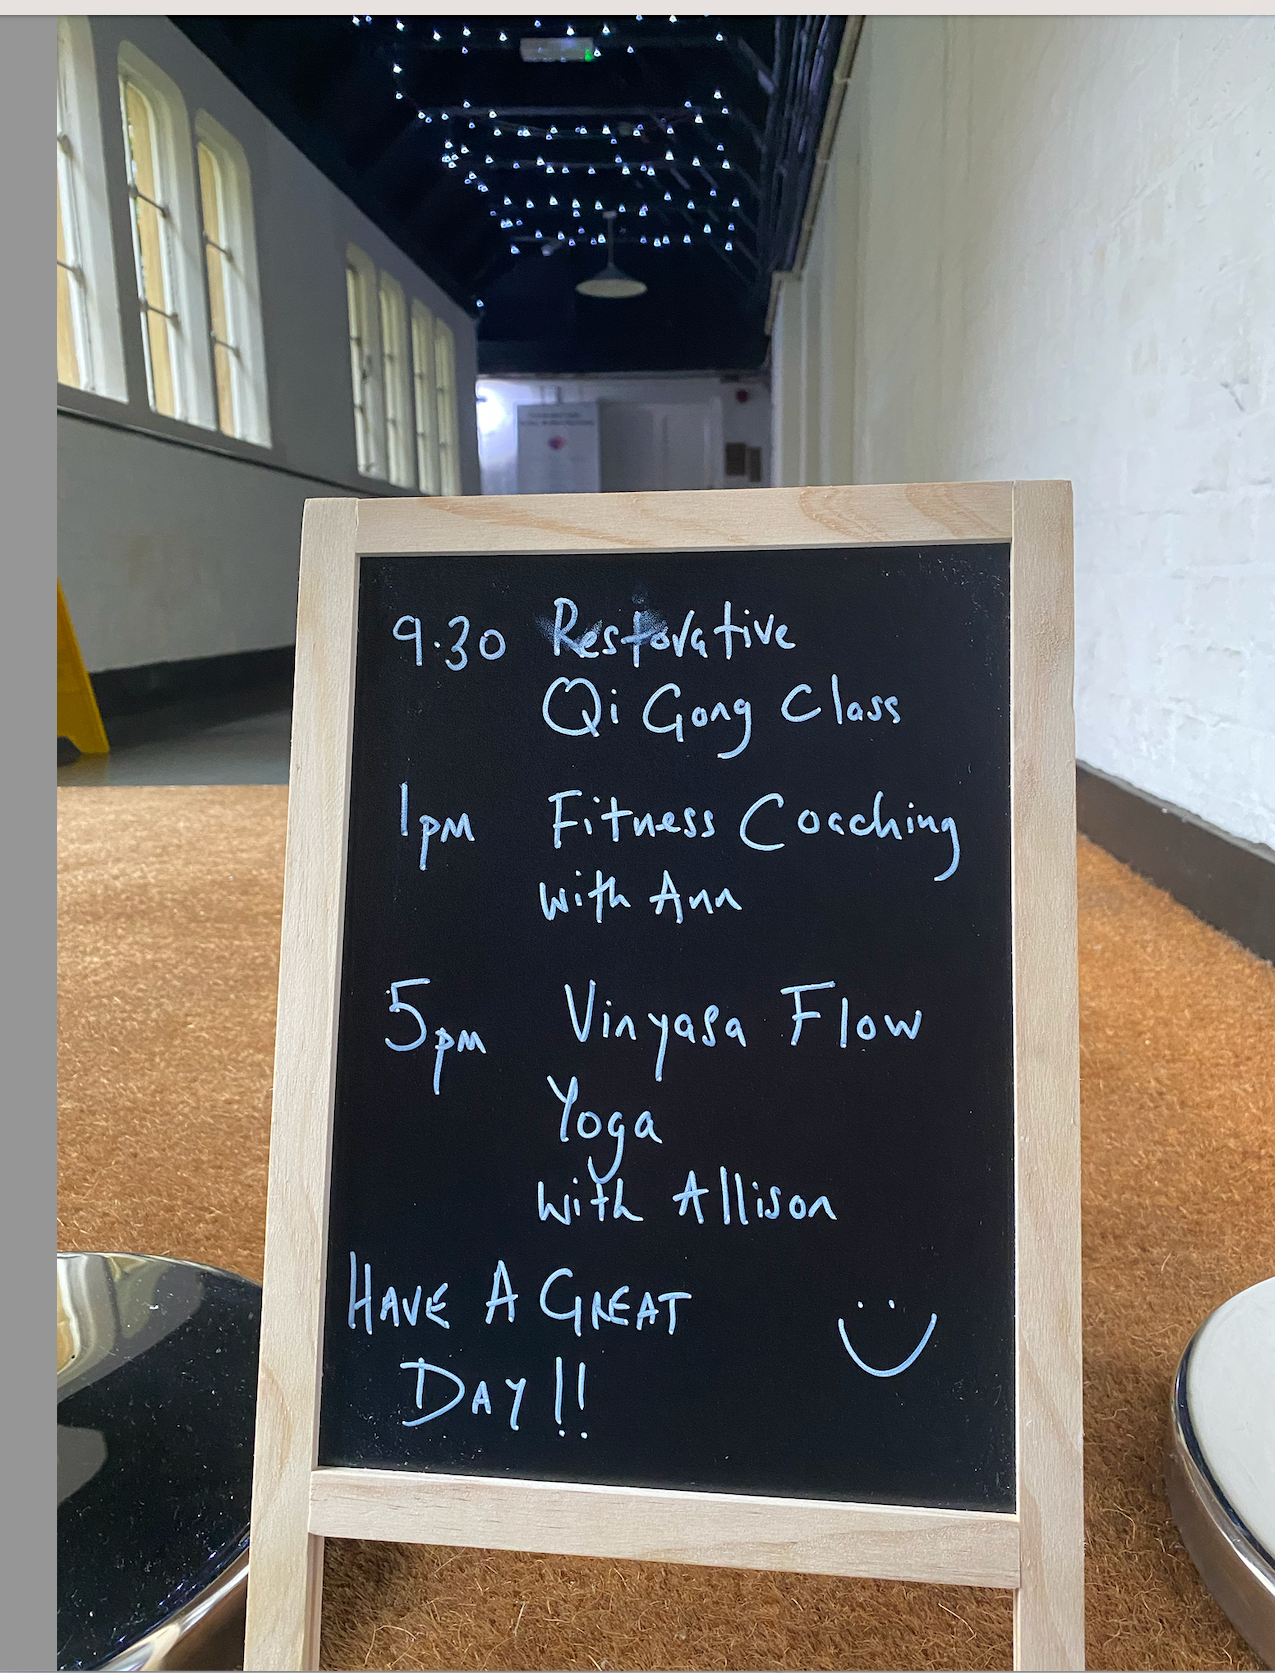 9.30 Restorative
Qi Gong Class
1pm Fitness Coaching
with Ann
5pm Vinyasa Flow
Yoga
with Allison
HAVE A GREAT
DAY!!